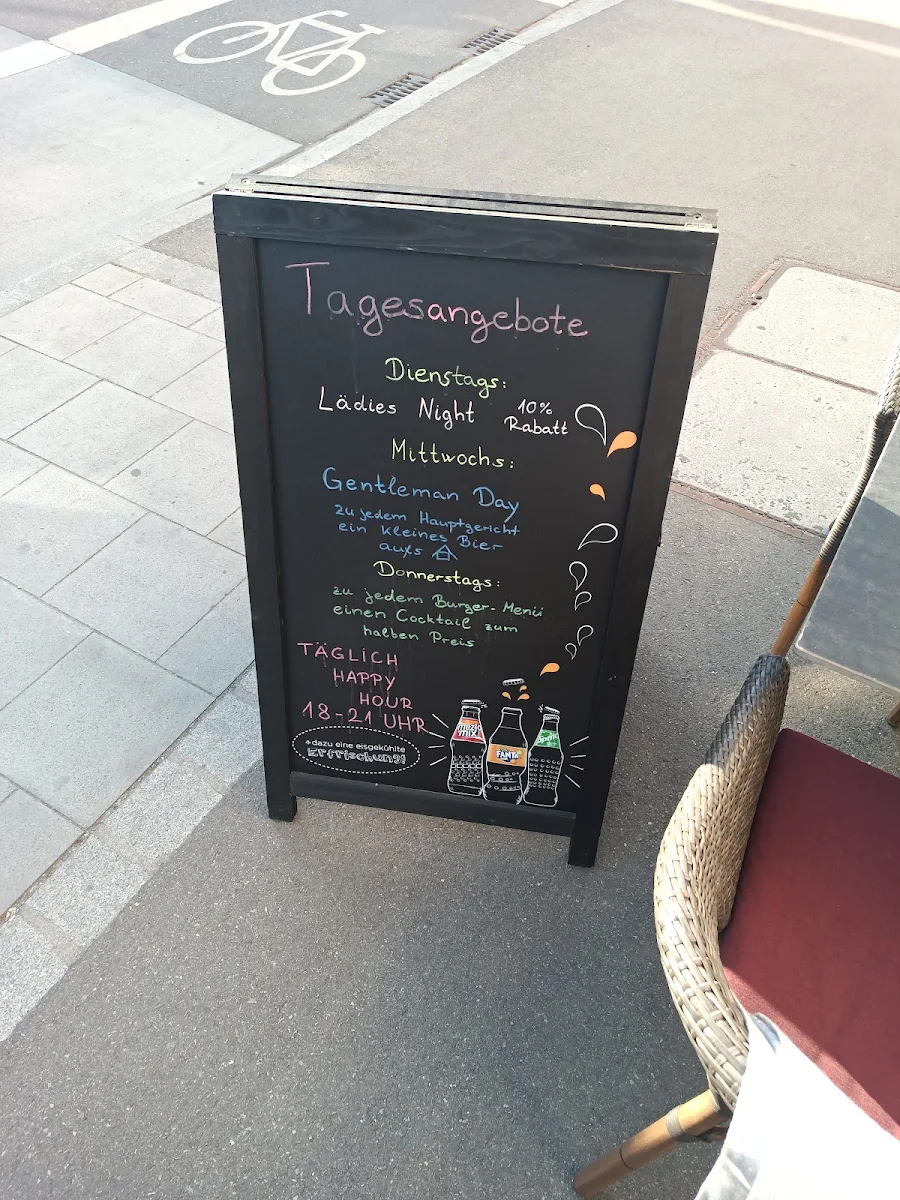 Tagesangebote
Dienstags:
Lädies Night 10% Rabatt
Mittwochs:
Gentleman Day
zu jedem Hauptgericht
ein kleines Bier
aufs
Donnerstags:
zu jedem Burger-Menü
einen Cocktail zum
halben Preis
TÄGLICH
HAPPY
HOUR
18-21 UHR
+dazu eine eisgekühlte
Erfrischung!
mezzo mix
FANTA
Sprite